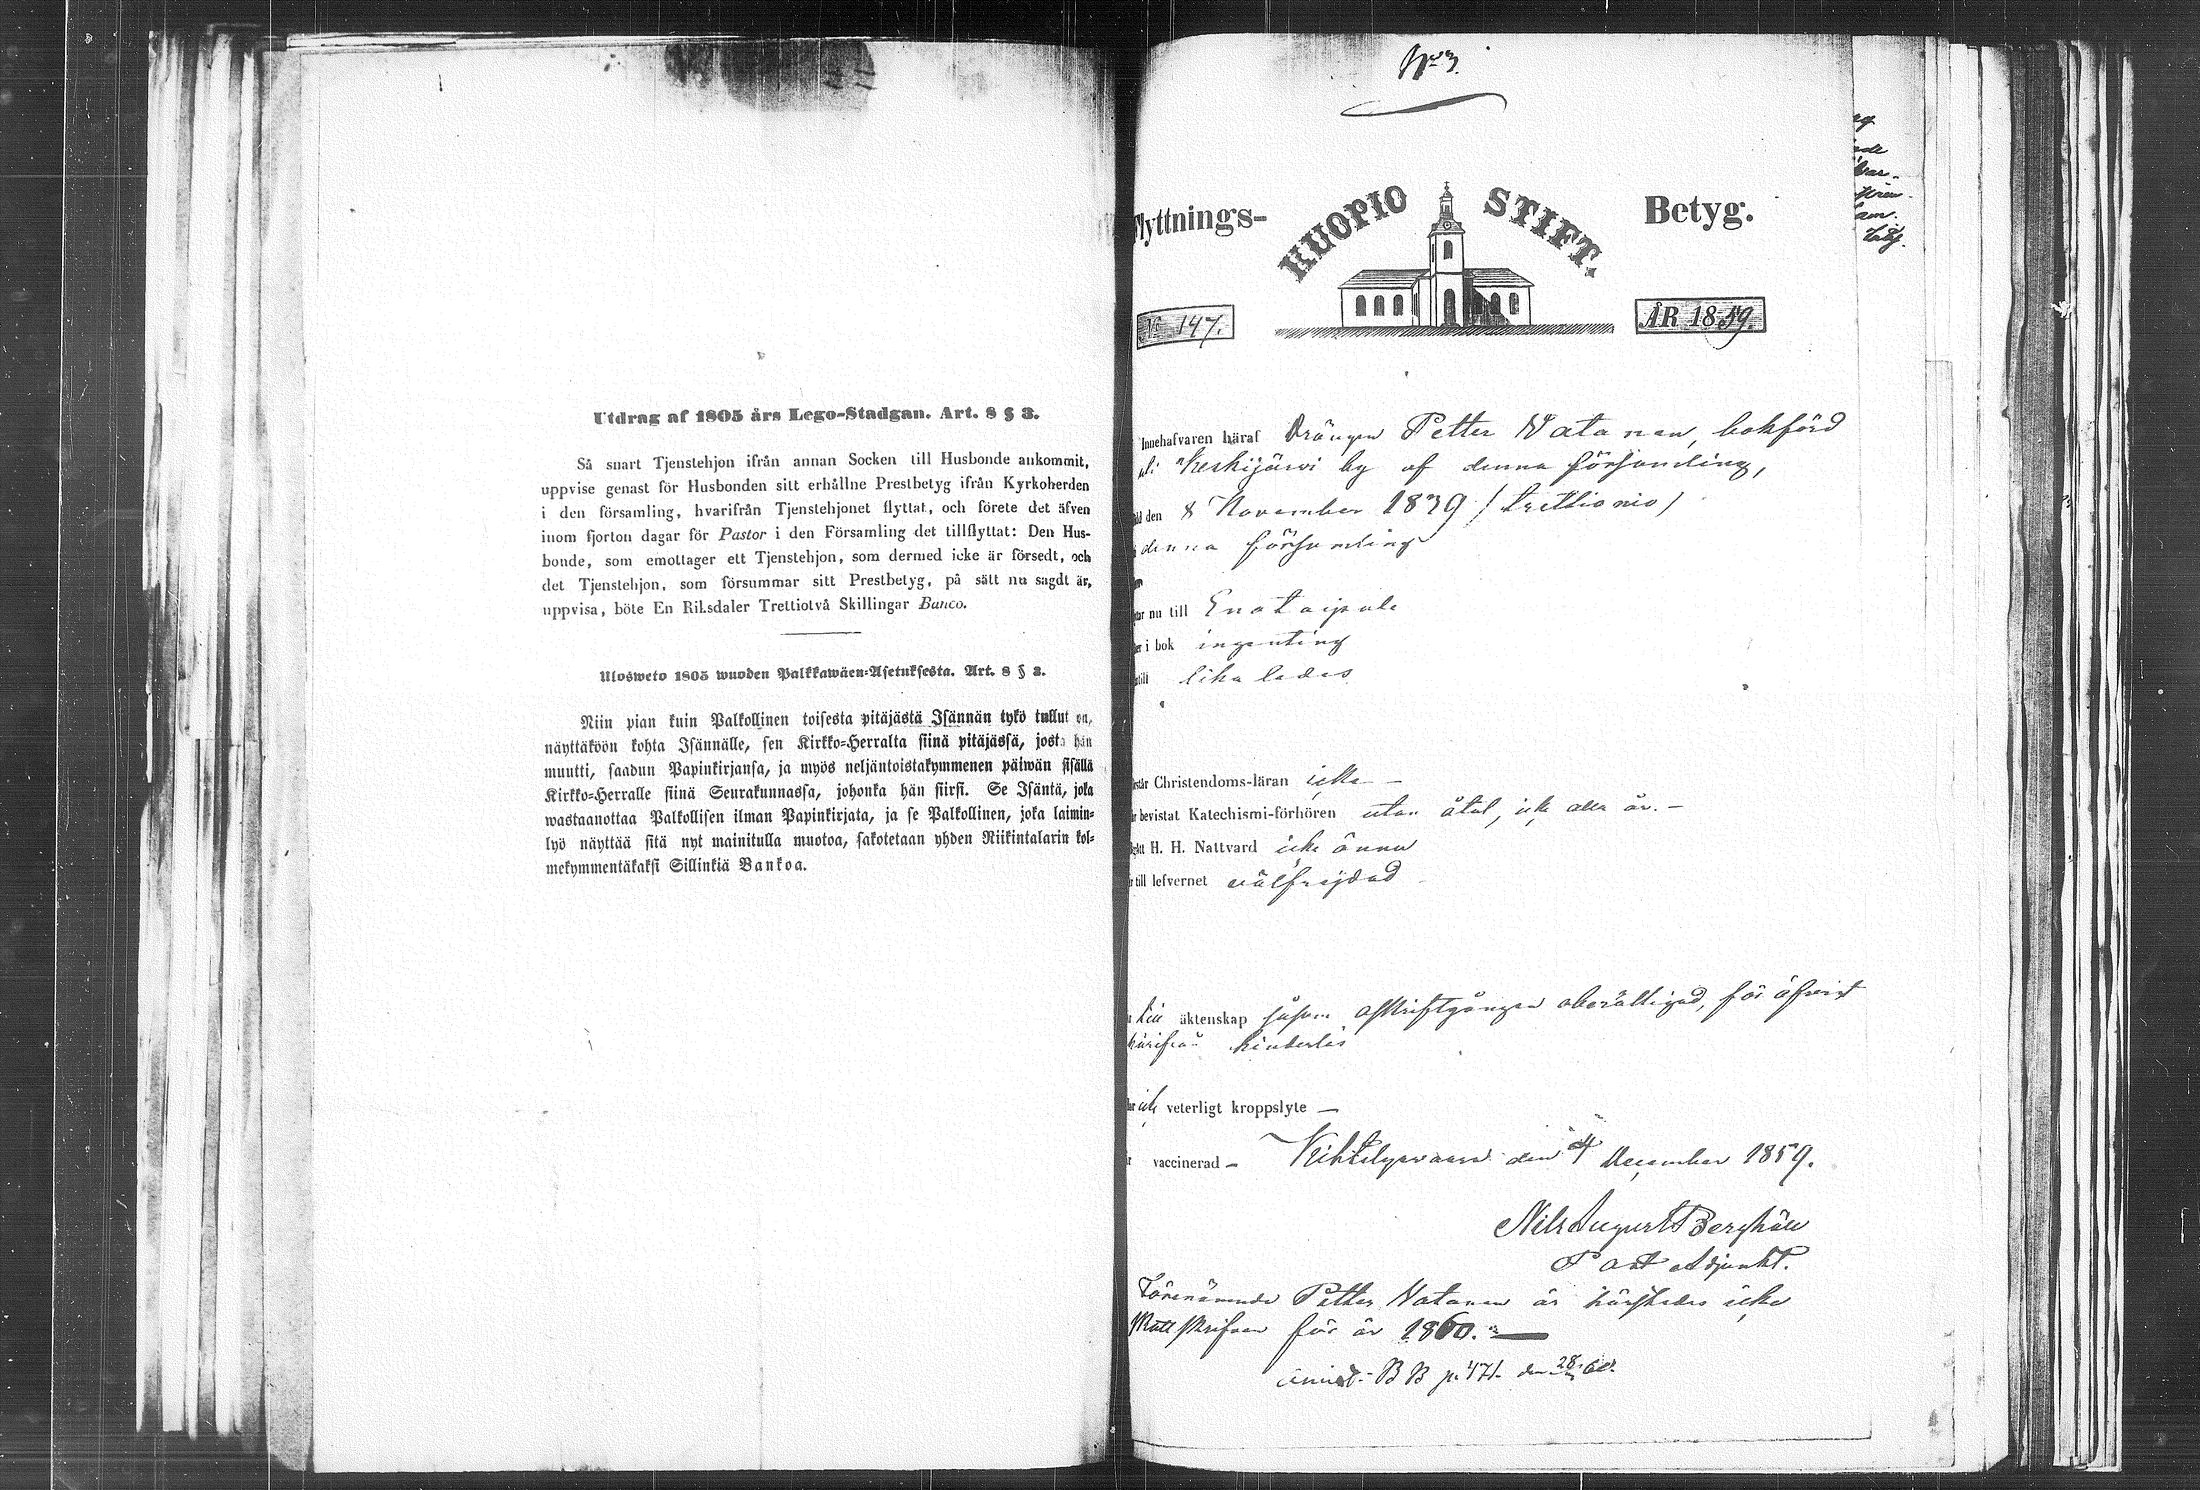 Utdrag af 1805 års Lego-Stadgan. Art. 8 § 3.
Så snart Tjenstehjon ifrån annan Socken till Husbonde ankommit,
uppvise genast för Husbonden sitt erhållne Prestbetyg ifrån Kyrkoherden
i den församling, hvarifrån Tjenstehjonet flyttat, och förete det äfven
inom fjorton dagar för Pastor i den Församling det tillflyttat: Den Hus-
bonde, som emottager ett Tjenstehjon, som dermed icke är försedt, och
det Tjenstehjon, som försummar sitt Prestbetyg, på sätt nu sagdt är,
uppvisa, böte En Riksdaler Trettiotvå Skillingar Banco.
Ulosweto 1805 wuoden Palkkawäen-Asetuksesta. Art. 8 § 3.
Niin pian kuin Palkollinen toisesta pitäjästä Isännän tykö tullut on,
näyttäköön kohta Isännälle, sen Kirkko-Herralta siinä pitäjässä, josta hän
muutti, saadun Papinkirjansa, ja myös neljäntoistakymmenen päiwän sisällä
Kirkko-Herralle siinä Seurakunnassa, johonka hän siirsi. Se Isäntä, joka
wastaanottaa Palkollisen ilman Papinkirjata, ja se Palkollinen, joka laimin-
lyö näyttää sitä nyt mainitulla muotoa, sakotetaan yhden Riikintalarin kol-
mekymmentäkaksi Sillinkiä Bankoa.
No 3.
Flyttnings- KUOPIO STIFT. Betyg.
No 147. ÅR 1859.
Innehafvaren häraf Drängen Petter Vatanen, bokförd
i Keskijärwi by af denna församling,
den 8 November 1839 /trettionio/
denna församling
nu till Enotaipale
i bok ingenting
till likaledes
Christendoms-läran icke –
bevistat Katechismi-förhören utan åtal, icke alla år. –
H. H. Nattvard icke ännu
till lefvernet välfrejdad
till äktenskap såsom oskriftgången oberättigad, för öfrigt
härifrån hinderlös
icke veterligt kroppslyte –
vaccinerad – Kihtelyswaara den 4 December 1859.
Nils August Berghäll
Past Adjunkt.
Förenämnde Petter Vatanen är härstedes icke
skattskrifven för år 1860. –
B B p. 471. den 28